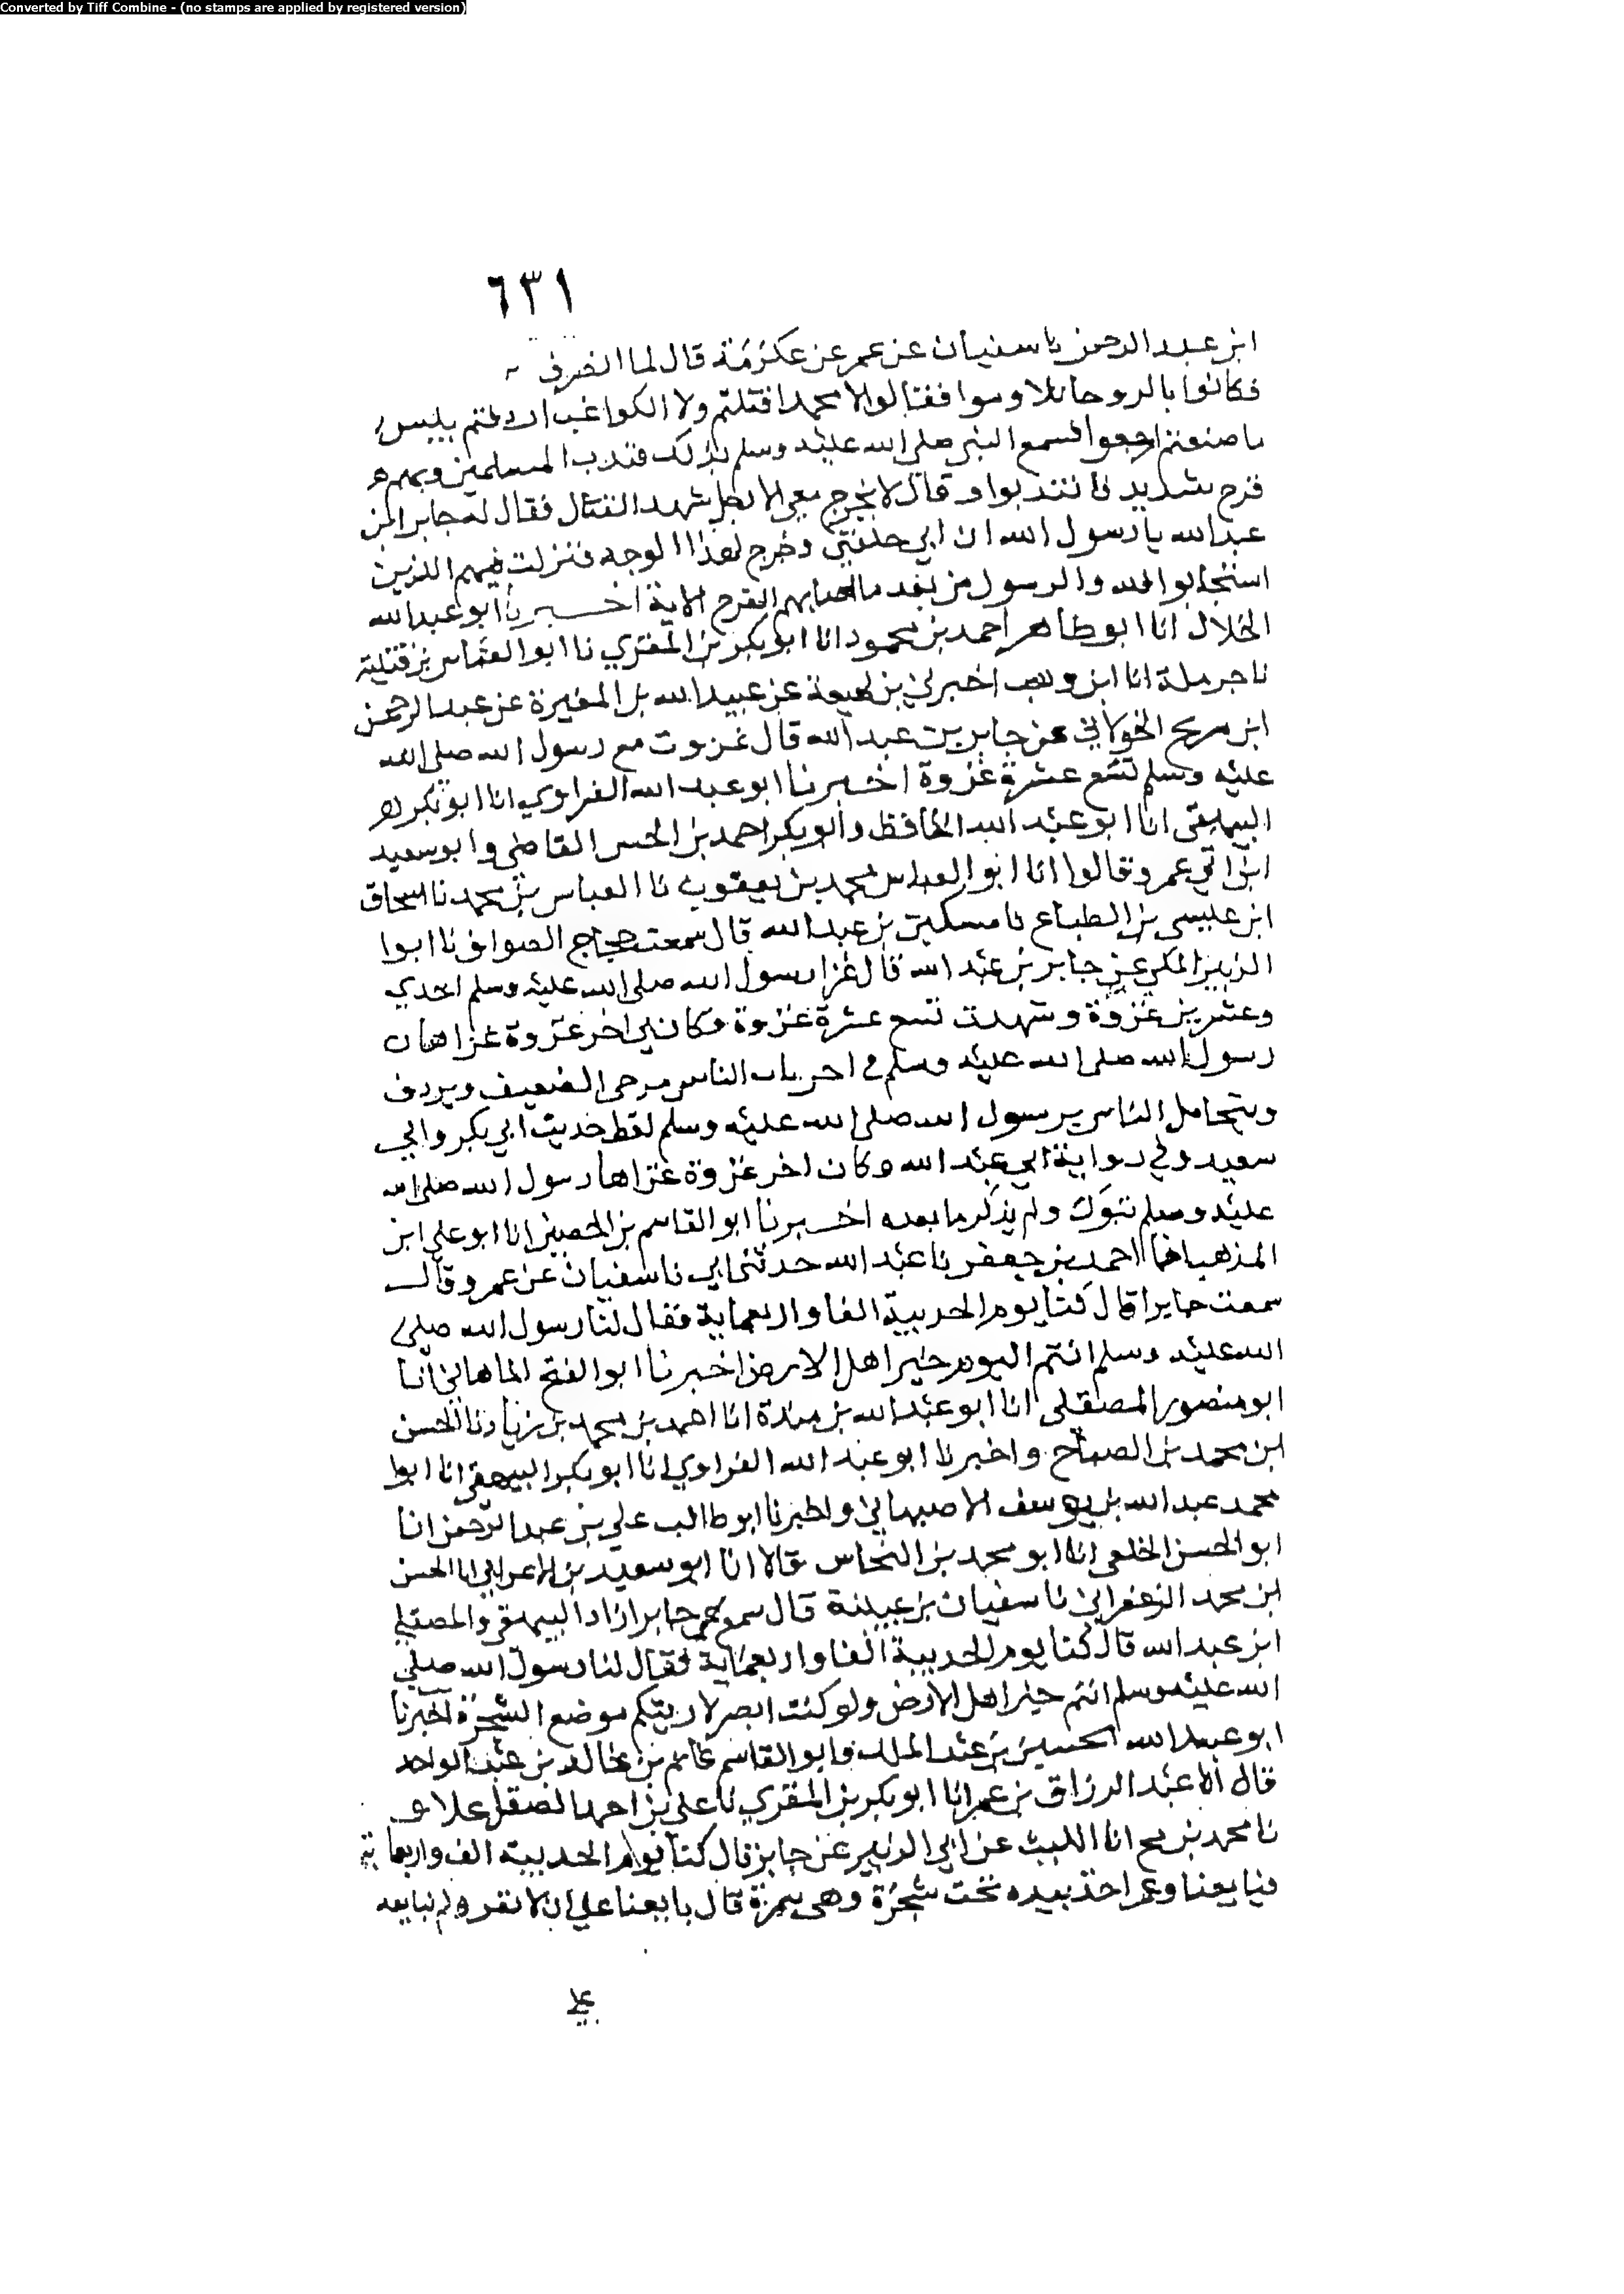 Converted by Tiff Combine - (no stamps are applied by registered version)
٦٣١
ابن عبد الرحمن نا سفيان عن عمر عن عكرمة قال لما انصرف
فكانوا بالروحا فقالوا لا محمدا قتلتم ولا الكواعب اردفتم بليس
ما صنعتم ارجعوا فسمع النبي صلى الله عليه وسلم بذلك فندب المسلمين وبهم
قرح شديد فانتدبوا وقال لا يخرج معي الا رجل شهد القتال فقال له جابر ابن
عبد الله يا رسول الله ان ابي خلفني وخرج لهذا الوجه فنزلت فيهم الذين
استجابوا لله والرسول من بعد ما اصابهم القرح الاية اخبرنا ابو عبد الله
الخلال انا ابو طاهر احمد بن محمود انا ابو بكر بن المقري نا ابو العباس بن قتيبة
نا حرملة انا ابن وهب اخبرني بن لهيعة عن عبيد الله بن المغيرة عن عبد الرحمن
ابن مريح الخولاني عن جابر بن عبد الله قال غزوت مع رسول الله صلى الله
عليه وسلم تسع عشرة غزوة اخبرنا ابو عبد الله الفراوي انا ابو بكر
البيهقي انا ابو عبد الله الحافظ وابو بكر احمد بن الحسن القاضي وابو سعيد
ابن ابي عمرو قالوا انا ابو العباس محمد بن يعقوب نا العباس بن محمد نا اسحاق
ابن عيسى بن الطباع نا مسكين بن عبد الله قال سمعت حجاج الصواف نا ابوا
الزبير المكي عن جابر بن عبد الله قال غزا رسول الله صلى الله عليه وسلم احدي
وعشرين غزوة وشهدت تسع عشرة غزوة فكان في اخر غزوة غزاها
رسول الله صلى الله عليه وسلم في اخريات الناس يزجى الضعيف ويردف
ويتحامل الناس برسول الله صلى الله عليه وسلم لفظ حديث ابي بكر وابي
سعيد وفي رواية ابي عبد الله وكان اخر غزوة غزاها رسول الله صلى الله
عليه وسلم تبوك ولم يذكر ما بعده اخبرنا ابو القاسم بن الحصين انا ابو علي ابن
المذهب انا احمد بن جعفر نا عبد الله حدثني ابي نا سفيان عن عمرو قال
سمعت جابرا قال كنا يوم الحديبية الفا واربعماية فقال لنا رسول الله صلى
الله عليه وسلم انتم اليوم خير اهل الارض اخبرنا ابو الفتح الماهاني انا
ابو منصور المصقلى انا ابو عبد الله بن مندة انا احمد بن محمد بن زياد نا الحسن
ابن محمد بن الصباح واخبرنا ابو عبد الله الفراوي انا ابو بكر البيهقي انا ابوا
محمد عبد الله بن يوسف الاصبهاني واخبرنا ابو طالب علي بن عبد الرحمن انا
ابو الحسن الخلعي انا ابو محمد بن النحاس قالا انا ابو سعيد بن الاعرابي انا الحسن
ابن محمد الزعفراني نا سفيان بن عيينة قال سمع عمرو جابرا زاد البيهقي والمصقلي
ابن عبد الله قال كنا يوم الحديبية الفا واربعماية فقال لنا رسول الله صلى
الله عليه وسلم انتم خير اهل الارض ولو كنت ابصر لاريتكم موضع الشجرة اخبرنا
ابو عبد الله الحسين بن عبد الملك وابو القاسم غانم بن خالد بن عبد الواحد
قالا انا عبد الرزاق بن عمر انا ابو بكر بن المقري نا علي بن احمد الصقل علان
نا محمد بن رمح انا الليث عن ابي الزبير عن جابر قال كنا يوم الحديبية الف واربعماية
فبايعنا وعمر اخذ بيده تحت شجرة وهي سمرة قال بايعنا على ان لا نفر ولم نبايعه
على